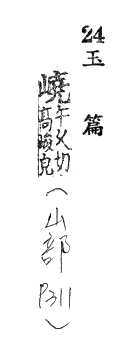 24玉篇
嶢午幺切高峻皃
(山部P311)